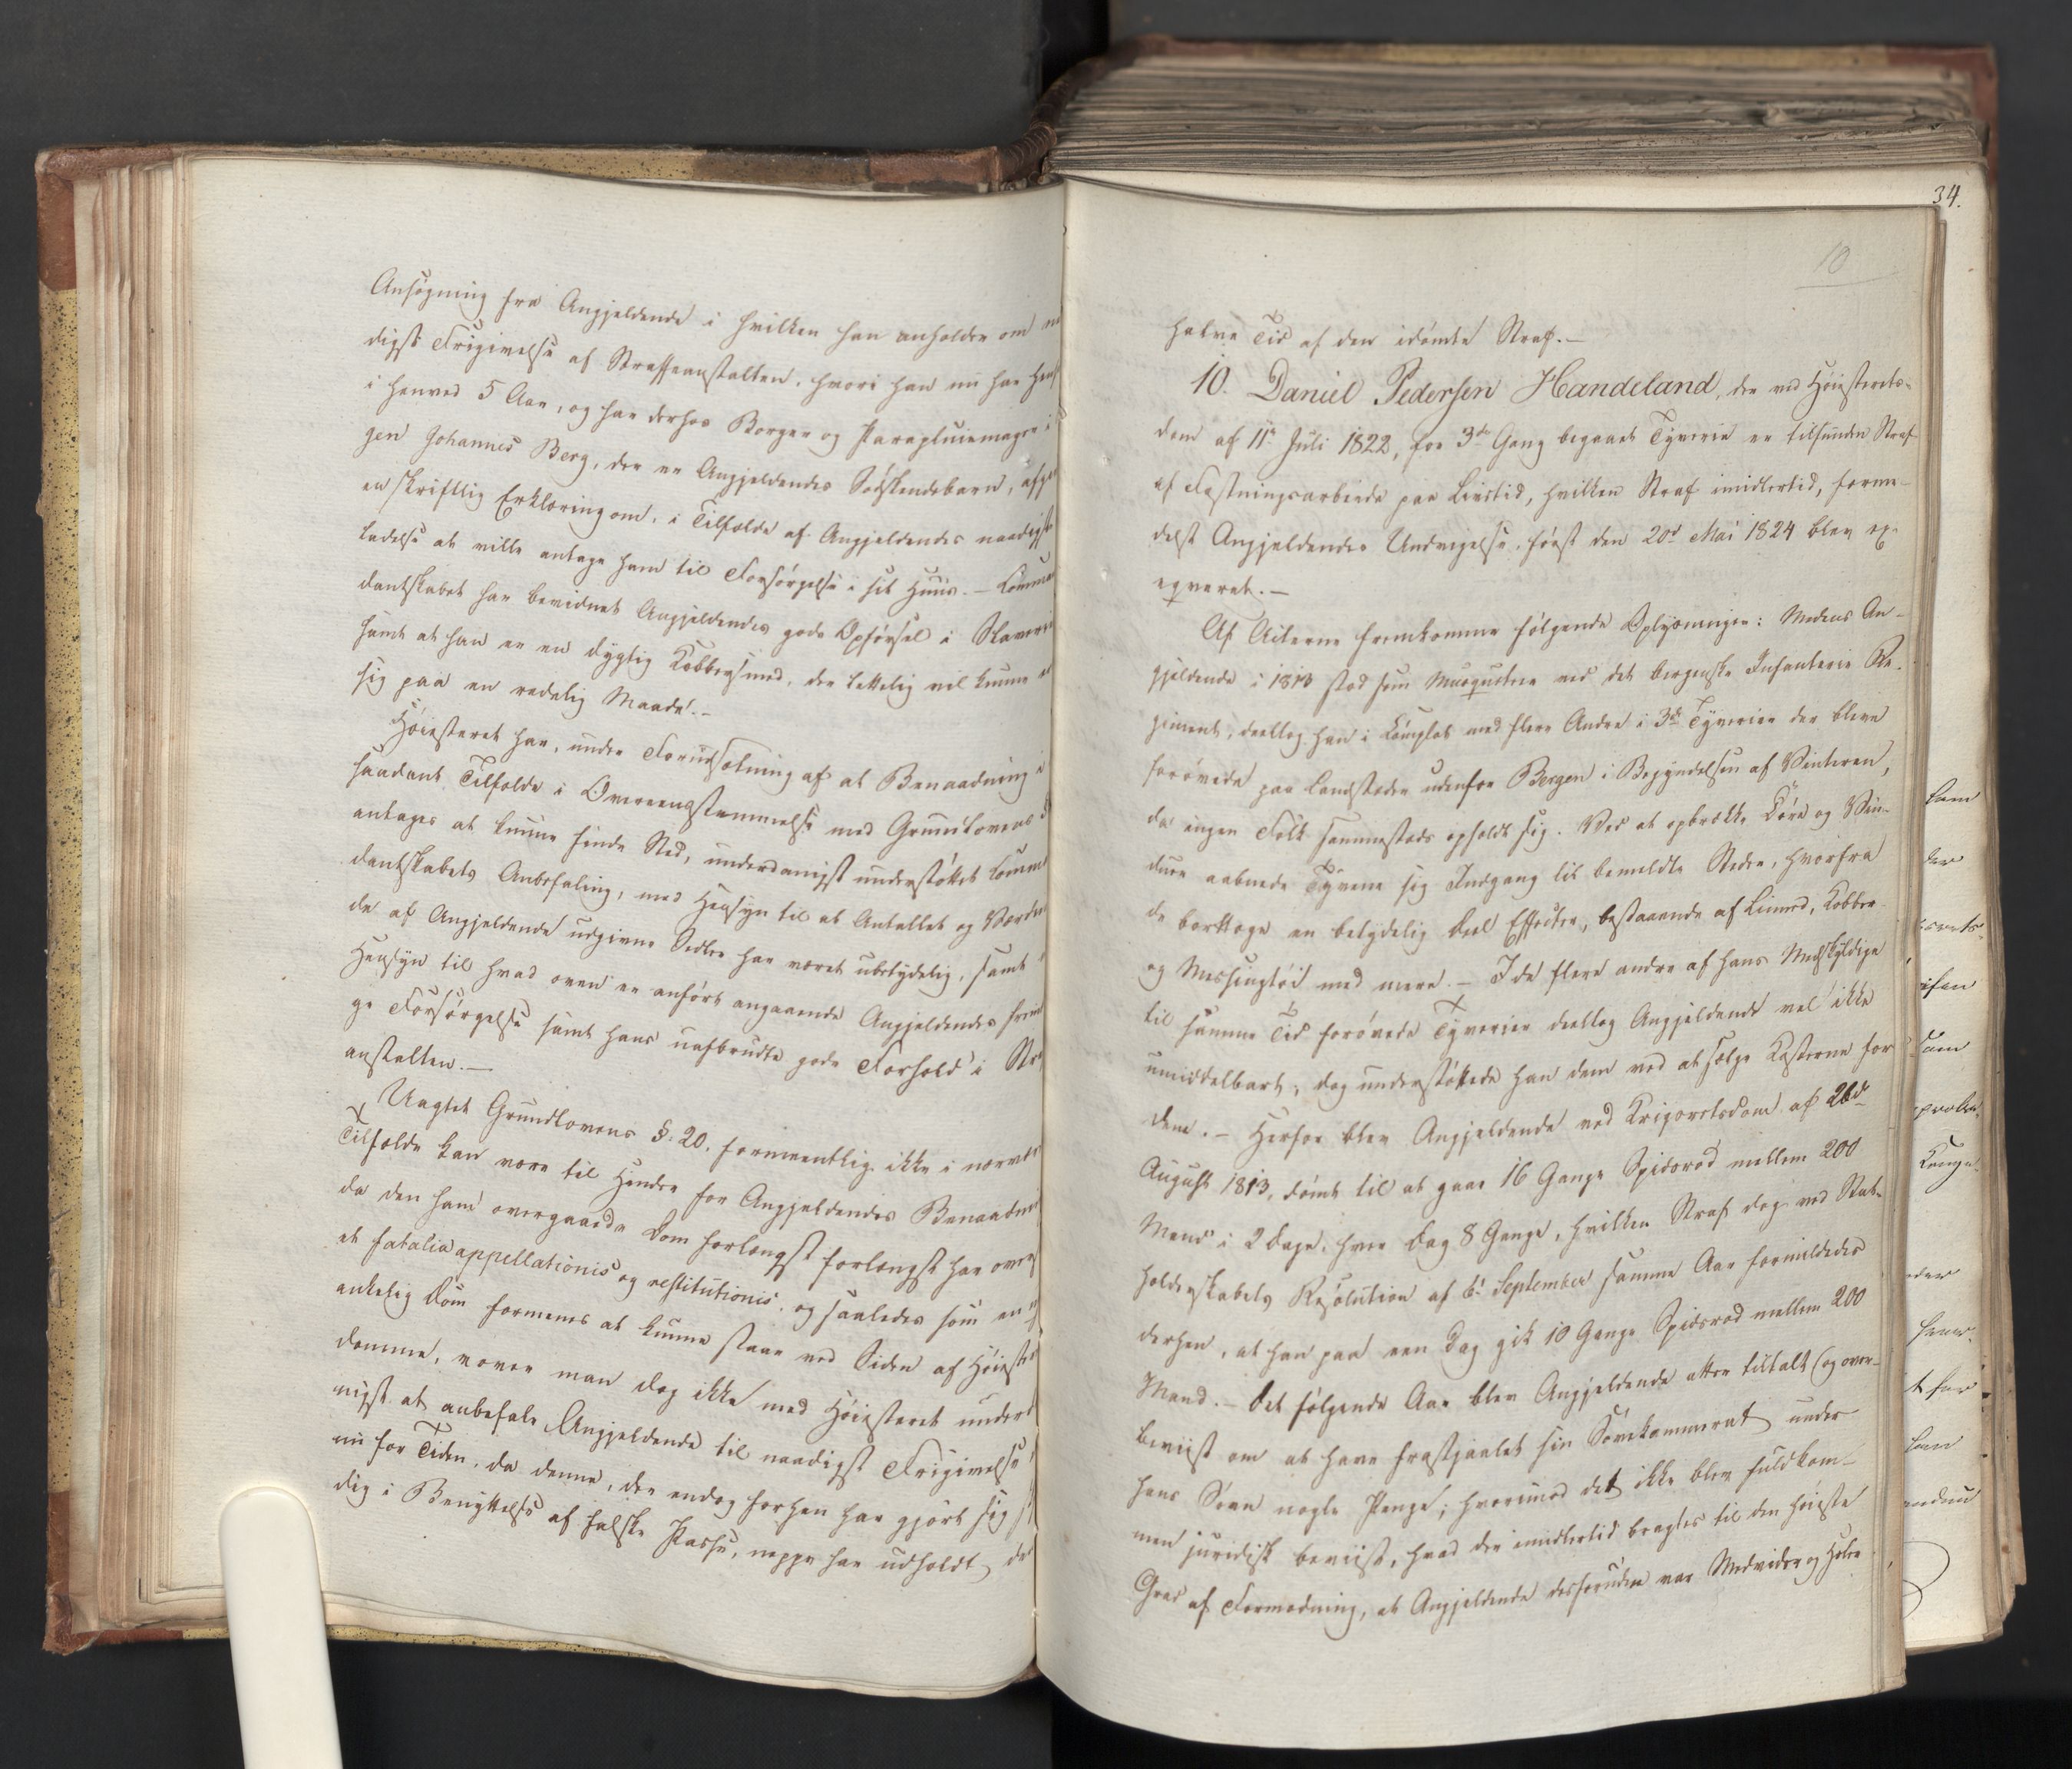 Ansøgning fra Angjeldende i hvilken han anholder om
digst Frigivelse af Straffeanstalten, hvori han nu har
i henved 5 Aar, og har derhos Borger og Parapluiemager i
gen Johannes Berg, der er Angjeldendes Sødskendebarn,
en skriftlig Erklæring om, i Tilfælde af Angjeldendes naadigste
ladelse at ville antage ham til Forsørgelse i sit Huus. –
dantskabet har bevidnet Angjeldendes gode Opførsel i Slaveriet
samt at han er en dygtig Kobbersmed, der lettelig vil kunne
sig paa en redelig Maade. –
Høiesteret har, under Forudsætning af at Benaadning i
saadant Tilfælde i Overeensstemmelse med Grundlovens §
antages at kunne finde Sted, underdanigst understøttet
dantskabets Anbefaling, med Hensyn til at Antallet og
de af Angjeldende udgivne Sedler har været ubetydelig, samt
Hensyn til hvad oven er anført angaaende Angjeldendes
ge Forsørgelse samt hans uafbrudte gode Forhold i
anstalten. –
Uagtet Grundlovens §. 20. formeentlig ikke i
Tilfælde kan være til Hinder for Angjeldendes
da den ham overgaaede Dom forlængst forlængst har
et fatalia appellationis og restitutionis, og saaledes som en
ankelig Dom formenes at kunne staae ved Siden af
domme, vover man dog ikke med Høiesteret
nigst at anbefale Angjeldende til naadigst Frigivelse
nu for Tiden, da denne, der endog forhen har gjort sig
dig i Benyttelse af falske Passe, neppe har udholdt
34.
10
halve Tid af den idømte Straf. –
10. Daniel Pedersen Handeland, der ved Høiesterets-
dom af 11te Juli 1822, for 3de Gang begaaet Tyverie er tilfunden Straf
af Fæstningsarbeide paa Livstid, hvilken Straf imidlertid, forme-
delst Angjeldendes Undvigelse, først den 20de Mai 1824 blev ex-
eqveret. –
Af Acterne fremkomme følgende Oplysninger: Medens An-
gjeldende i 1813 stod som Musqueteer ved det bergenske Infanterie Re-
giment, deeltog han i Complot med flere Andre i 3de Tyverier der bleve
forøvede paa Landstæder udenfor Bergen i Begyndelsen af Vinteren,
da ingen Folk sammesteds opholdt sig. Ved at opbrække Døre og Vin-
duer aabnede Tyvene sig Indgang til bemeldte Steder, hvorfra
de borttoge en betydelig Deel Effecter, bestaaende af Linned, Kobber-
og Messingtøi med mere. – I de flere andre af hans Medskyldige
til samme Tid forøvede Tyverier deeltog Angjeldende vel ikke
umiddelbart, dog understøttede han dem ved at sælge Kosterne for
dem. – Herfor blev Angjeldende ved Krigsretsdom af 26de
August 1813, dømt til at gaae 16 Gange Spidsrod mellem 200
Mand i 2 Dage, hver Dag 8 Gange, hvilken Straf dog ved Stat-
holderskabets Resolution af 6. September samme Aar formildedes
derhen, at han paa een Dag gik 10 Gange Spidsrod mellem 200
Mand. – Det følgende Aar blev Angjeldende atter tiltalt (og over-
beviist om at have frastjaalet sin Sovekammerat under
hans Søvn nogle Penge; hvorimod det ikke blev fuldkom-
men juridisk beviist, hvad der imidlertid bragtes til den høieste
Grad af Formodning, at Angjeldende desforuden var Medvider og Hæler